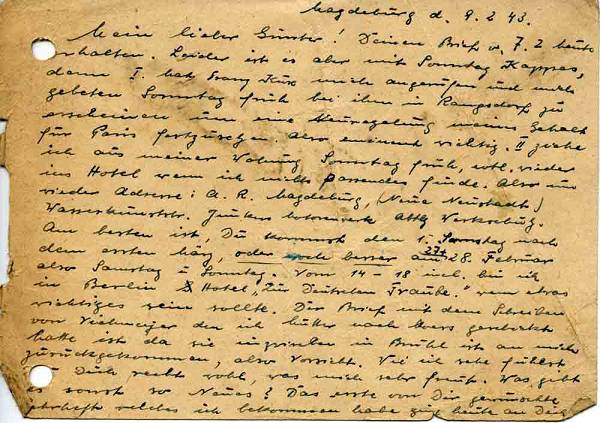 Magdeburg d. 9. 2 43.
Mein lieber Günter! Deinen Brief v. 7.2 heute
erhalten. Leider ist es aber mit Sonntag Kappes,
denn I. hat Franz Kux mich angerufen und mich
gebeten Sonntag früh bei ihm in Rangsdorf zu
erscheinen um eine Neuregelung meines Gehalt
für Paris festzusetzen. Also eminent wichtig. II ziehe
ich aus meiner Wohnung Sonntag früh, evtl. wieder
ins Hotel wenn ich nichts passendes finde. Also nun
wieder Adresse: A. R. Magdeburg, (Neue Neustadt)
Wasserkunststr. Junkers Motorenwerk Werksburg.
Am besten ist, Du kommst den 1. Sonntag nach
dem ersten hay, oder noch besser am 27. 28. Februar
also Samstag u Sonntag. Vom 14 - 18 incl. bin ich
in Berlin Hotel „Zur Deutschen Traube." wenn etwas
wichtiges sein sollte. Der Brief mit dem Schreiben
von den ich Mutter nach Moers geschickt
hatte ist da sie inzwischen in Brühl ist an mich
zurückgekommen, also Vorsicht. Wie ich sehe fühlst
Du Dich recht wohl, was mich sehr freut. Was gibt
es sonst so Neues? Das erste von Dir gewünschte
welches ich bekommen habe heute an Dich